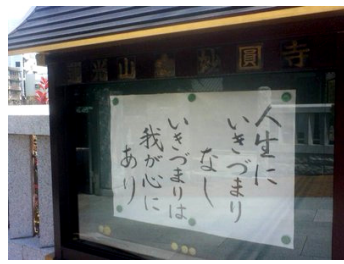 山 妙圓寺
人生に
いきづまり
なし
いきづまりは
我が心に
あり